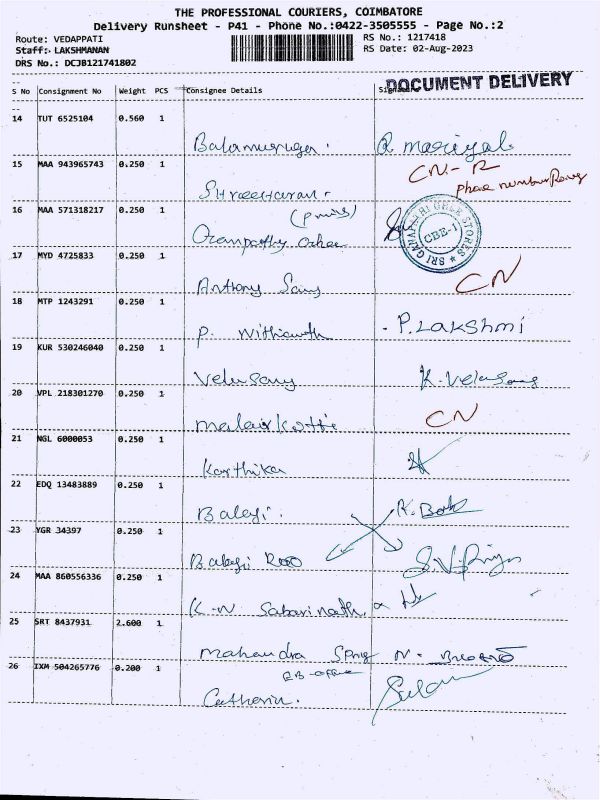 THE PROFESSIONAL COURIERS, COIMBATORE
Delivery Runsheet - P41 - Phone No.:0422-3505555 - Page No.:2
Route: VEDAPPATI RS No.: 1217418
Staff: LAKSHMANAN RS Date: 02-Aug-2023
DRS No.: DCJB121741802
DOCUMENT DELIVERY
S No Consignment No Weight PCS Consignee Details Signature
14 TUT 6525104 0.560 1
Balamurugan.
15 MAA 943965743 0.250 1 CN-R
Phone number Rong
SHreeHaran.
16 MAA 571318217 0.250 1
SRI GANAPATHI STORES CBE-1
17 MYD 4725833 0.250 1
Anthony Samy CN
18 MTP 1243291 0.250 1
P. P.Lakshmi
19 KUR 530246040 0.250 1
Velusamy K.Velusamy
20 VPL 218301270 0.250 1
CN
21 NGL 6000053 0.250 1
Karthika
22 EDQ 13483889 0.250 1
Balaji.
23 YGR 34397 0.250 1
Balaji Rao
24 MAA 860556336 0.250 1
K.N Sabarinath
25 SRT 8437931 2.600 1
Mahendra
26 IXM 504265776 0.200 1
Catherin.